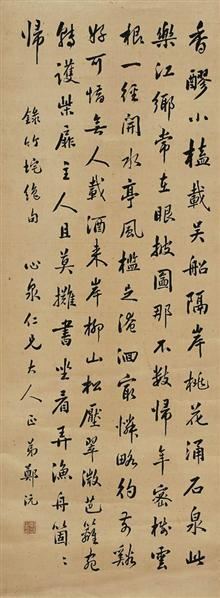 香醪小榼載吳船隔岸桃花涌石泉此
樂江鄉常在眼披圖那不數歸年密樹雲
根一徑開水亭風檻足淹洄最憐略彴前谿
好可惜無人載酒來岸柳山松壓翠微芭籬宛
轉護柴扉主人且莫攤書坐看弄漁舟箇〻
歸
錄竹垞絕句 心泉仁兄大人正 弟鄭沅